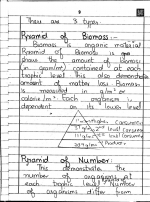 There are 3 types
Pyramid of Biomass :-
Biomass is organic material
Pyramid of Biomass is
shows the amount of Biomass
(in gram/m²) contained at each
trophic level. This also demonstrate
amount of matter lost. Biomass
is measured in g/m² or
calorie/m². Each organisms
dependent on its lower level
consumer
level consumer
level consumer
Producer
Pyramid of Number :-
This demonstrate the
number of organisms at
each trophic level. Number
of organisms differ from